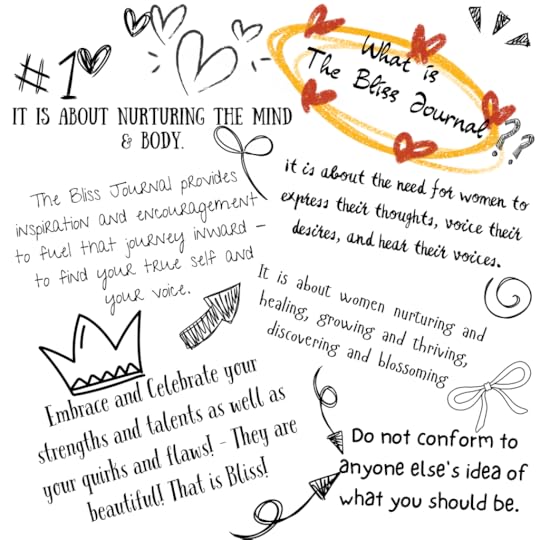 #1
IT IS ABOUT NURTURING THE MIND
& BODY.
What is
The Bliss Journal
??
it is about the need for women to
express their thoughts, voice their
desires, and hear their voices.
The Bliss Journal provides
inspiration and encouragement
to fuel that journey inward –
to find your true self and
your voice.
It is about women nurturing and
healing, growing and thriving,
discovering and blossoming
Embrace and Celebrate your
strengths and talents as well as
your quirks and flaws! - They are
beautiful! That is Bliss!
Do not conform to
anyone else's idea of
what you should be.